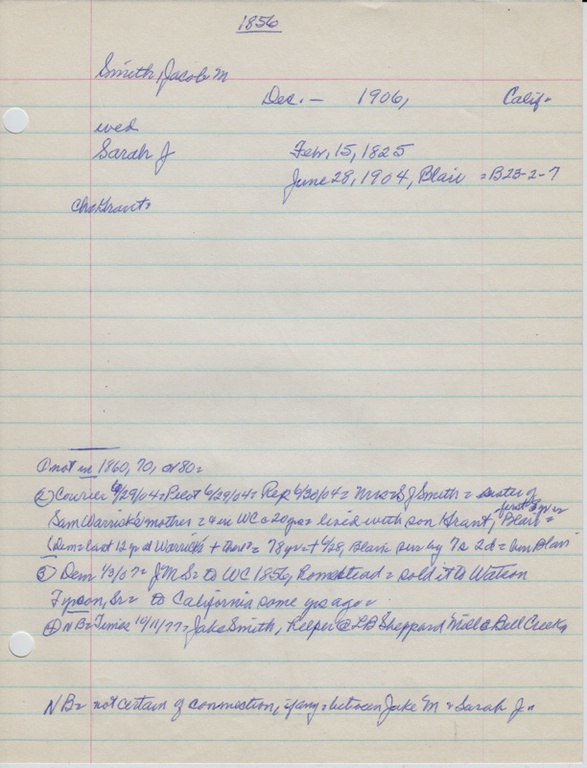 1856
Smith, Jacob M
Dec. — 1906, Calif=
wed
Sarah J Feb, 15, 1825
June 28, 1904, Blair = B23-2-7
Ch=Grant=
① not in 1860, 70, or 80=
② Courier 6/29/04= Pilot 6/29/04= Rep 6/30/04= Mrs S J Smith = sister of
Sam Warrick's mother = in WC @ 20 yrs = lived with son Grant, first 8 yrs in Blair =
(Dem= last 12 yr at Warrick's + there= 78 yr + 6/28, Blair= sur by 7s 2d = bur Blair
③ Dem 1/3/07= J M S= to WC 1856, Homestead = sold it to Watson
Tyson, Sr= to California some yrs ago=
④ NB= Times 10/11/77= Jake Smith, Helper @ LB Sheppard Mill @ Bell Creek
NB= not certain of connection, if any = between Jake M = Sarah J=